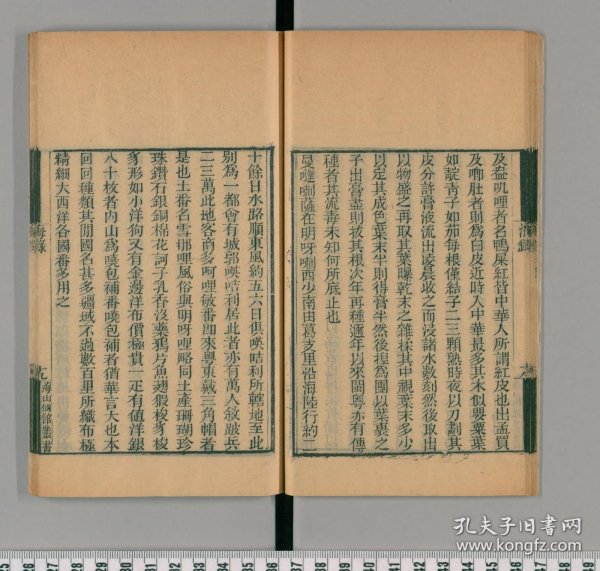 及盎叽哩者名鴨屎紅皆中華人所謂紅皮也出孟買
及唎肚者則爲白皮近時入中華最多其木似罌粟葉
如靛青子如茄每根僅結子二三顆熟時夜以刀劃其
皮分許膏液流出淩晨收之而浸諸水數刻然後取出
以物盛之再取其葉曝乾末之雜揉其中視葉末多少
以定其成色葉末半則得膏半然後捏爲團以葉裹之
子出膏盡則拔其根次年再種邇年以來閩粵亦有傳
種者其流毒未知何所底止也
曼噠喇薩在明呀喇西少南由葛支里沿海陸行約二
十餘日水路順東風約五六日俱㗲咭利所轄地至此
別爲一都會有城郭㗲咭利居此者亦有萬人敘跛兵
二三萬此地客商多呵哩敏番卽來粵東戴三角帽者
是也土番名雪那哩風俗與明呀哩略同土產珊瑚珍
珠鑽石銀銅棉花訶子乳香沒藥鴉片魚翅猴梭豸梭
豸形如小洋狗又有金邊洋布價極貴一疋有値洋銀
八十枚者內山爲曉包補番曉包補者猶華言大也本
回回種類其間國名甚多疆域不過數百里所織布極
精細大西洋各國番多用之
海錄
九
海山仙館叢書
孔夫子旧书网
www.kongfz.com